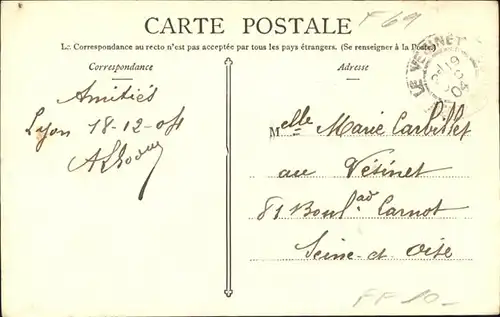 CARTE POSTALE
F69
La Correspondance au recto n'est pas acceptée par tous les pays étrangers. (Se renseigner à la Poste.)
Correspondance
Adresse
LE VESINET
19
04
Amitiés
Lyon 18-12-04
Melle Marie Carbillet
au Vésinet
81 Boulad Carnot
Seine-et Oise
FF 10-